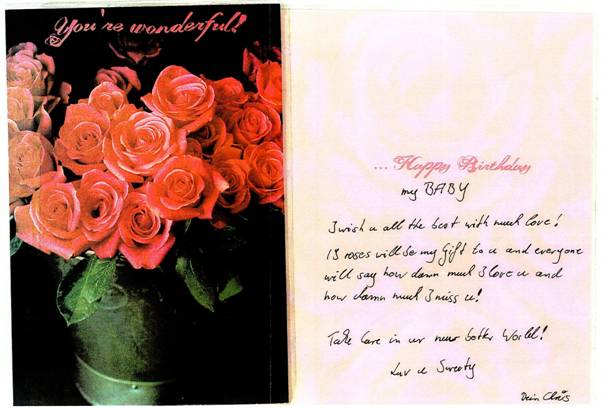 You're wonderful!
... Happy Birthday
my BABY
I wish u all the best with much love!
13 roses will be my Gift to u and everyone
will say how damn much I love u and
how damn much I miss u!
Take Care in ur new better World!
Luv u Sweety
Dein Chris